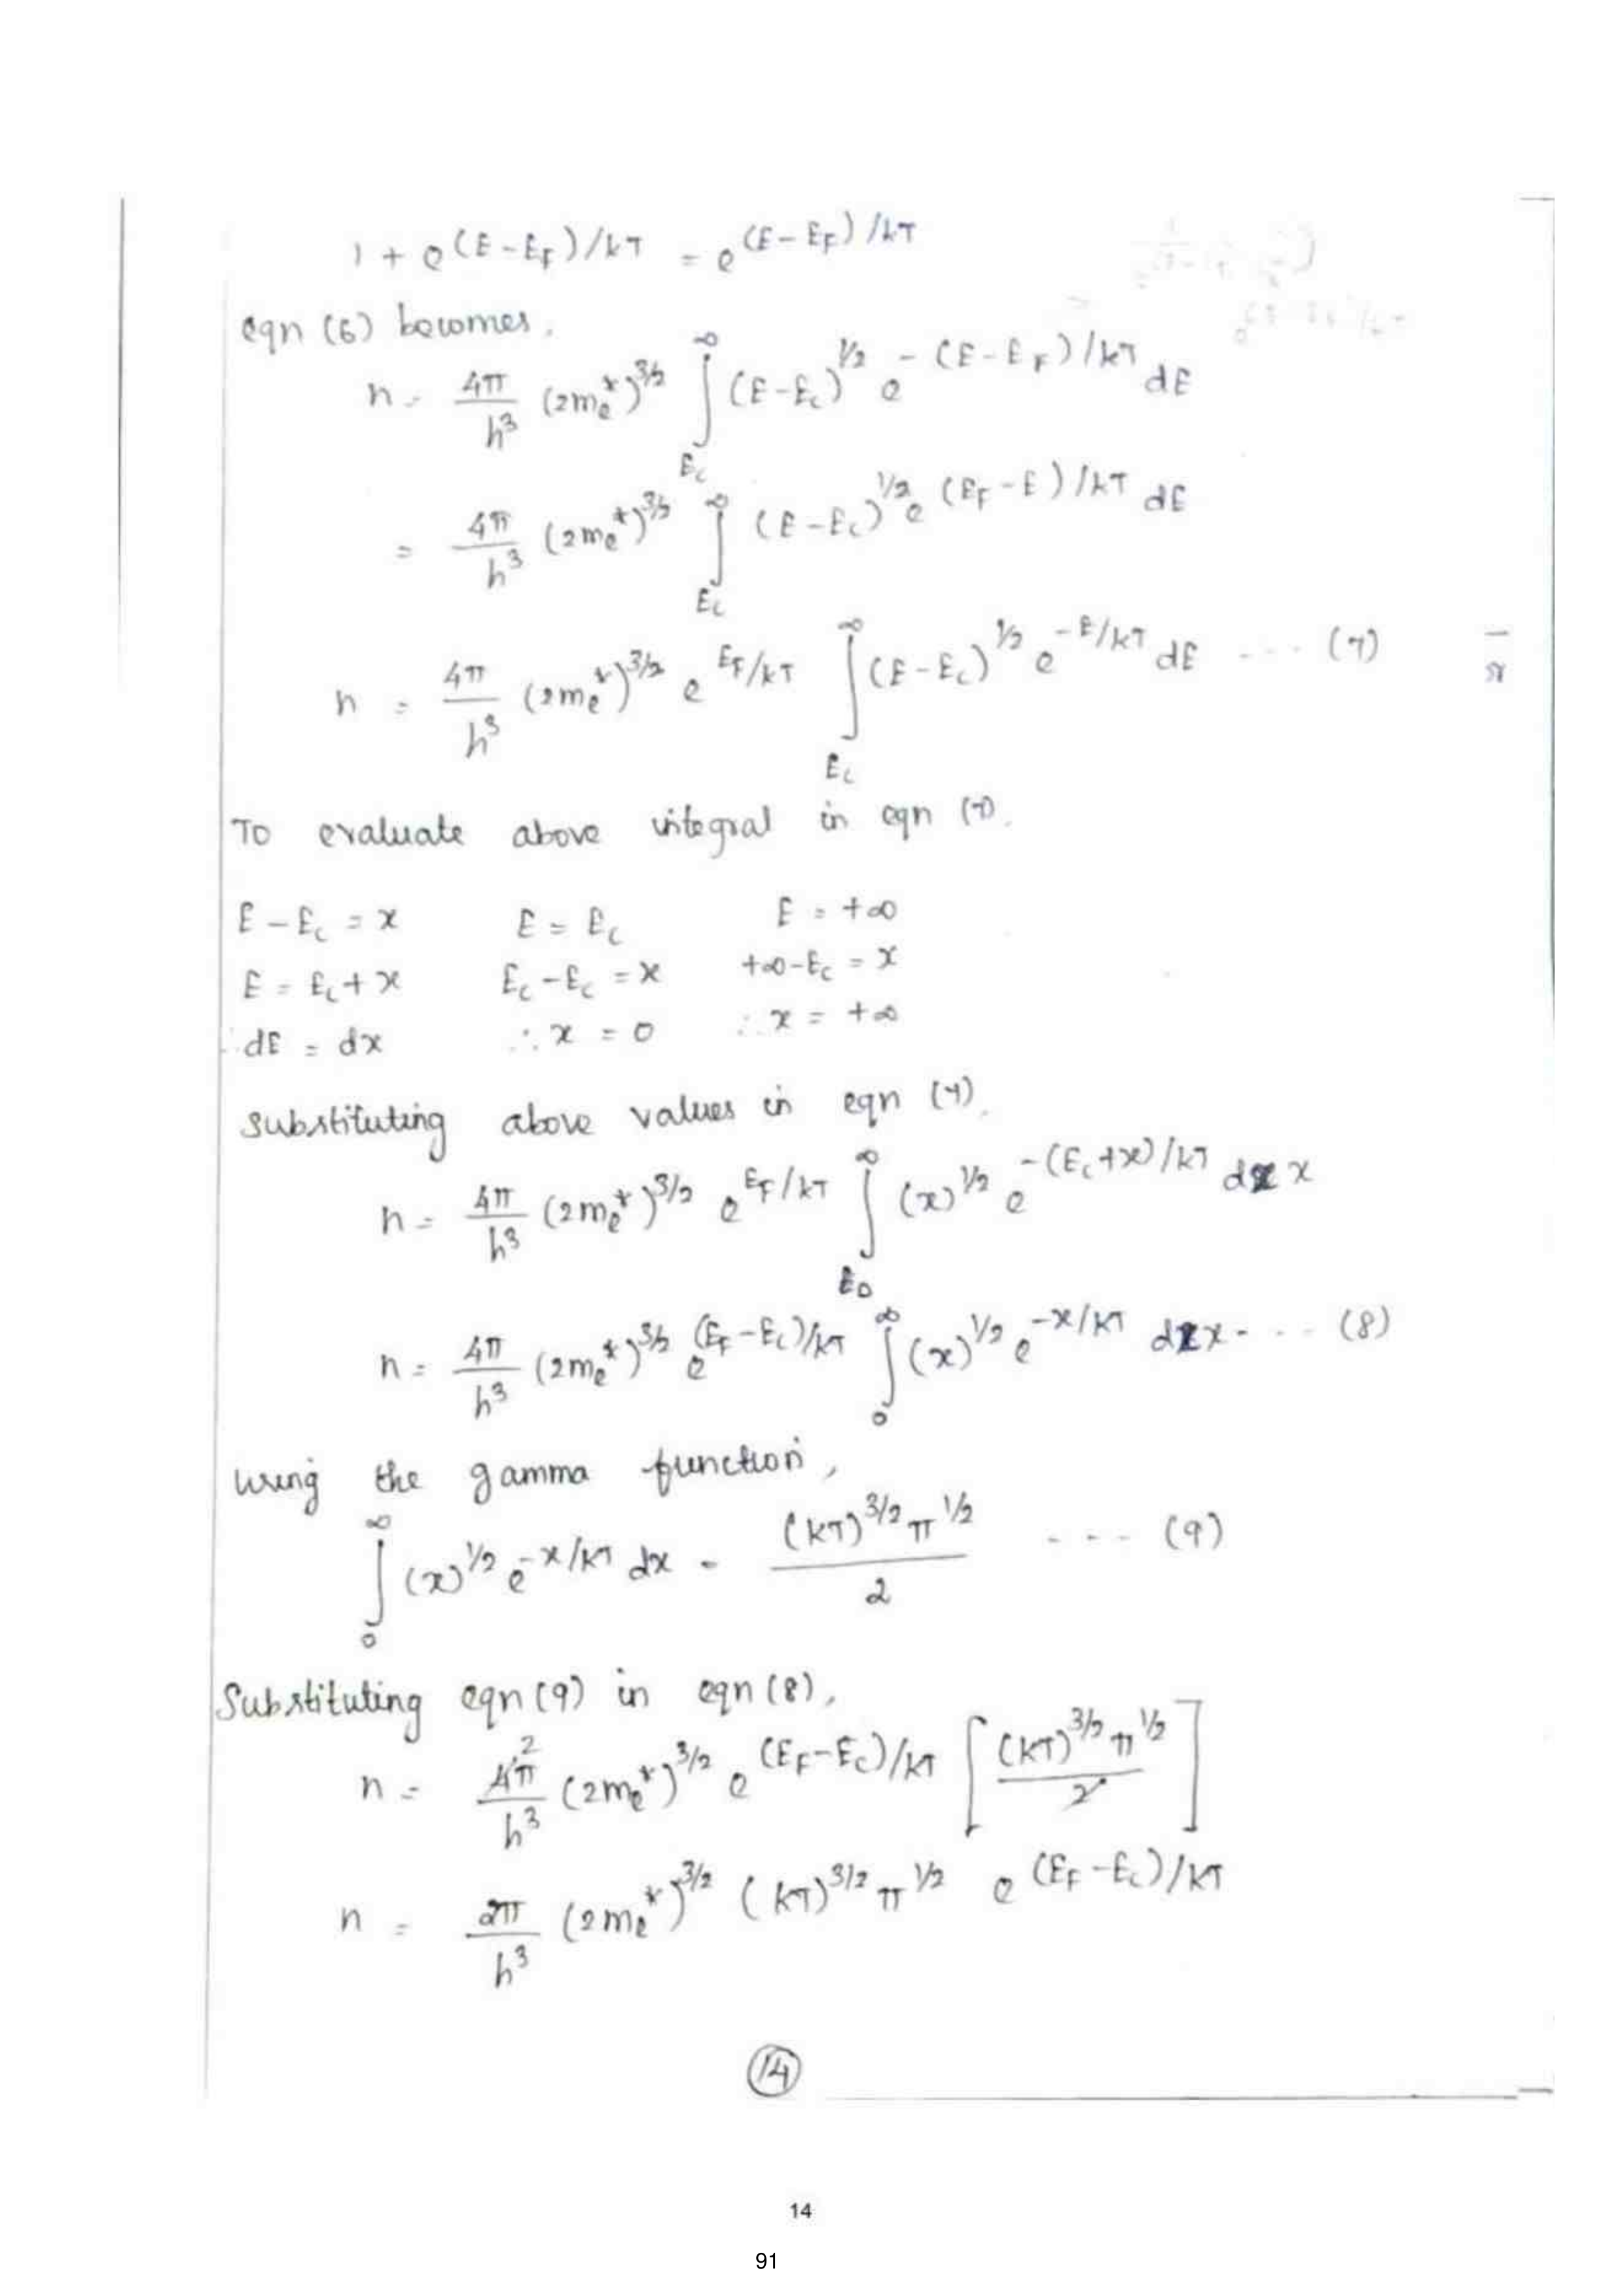 1 + e^(E-E_F)/kT = e^(E-E_F)/kT
eqn (6) becomes,
n = 4π/h³ (2m_e*)^3/2 ∫_{E_c}^{∞} (E-E_c)^1/2 e^-(E-E_F)/kT dE
= 4π/h³ (2m_e*)^3/2 ∫_{E_c}^{∞} (E-E_c)^1/2 e^(E_F-E)/kT dE
n = 4π/h³ (2m_e*)^3/2 e^E_F/kT ∫_{E_c}^{∞} (E-E_c)^1/2 e^-E/kT dE --- (7)
To evaluate above integral in eqn (7).
E - E_c = x E = E_c E = +∞
E = E_c + x E_c - E_c = x +∞ - E_c = x
∴ dE = dx ∴ x = 0 ∴ x = +∞
Substituting above values in eqn (7),
n = 4π/h³ (2m_e*)^3/2 e^E_F/kT ∫_{0}^{∞} (x)^1/2 e^-(E_c+x)/kT dx
n = 4π/h³ (2m_e*)^3/2 e^(E_F-E_c)/kT ∫_{0}^{∞} (x)^1/2 e^-x/kT dx --- (8)
Using the gamma function,
∫_{0}^{∞} (x)^1/2 e^-x/kT dx = (kT)^3/2 π^1/2 / 2 --- (9)
Substituting eqn (9) in eqn (8),
n = 4π/h³ (2m_e*)^3/2 e^(E_F-E_c)/kT [(kT)^3/2 π^1/2 / 2]
n = 2π/h³ (2m_e*)^3/2 (kT)^3/2 π^1/2 e^(E_F-E_c)/kT
14
14
91